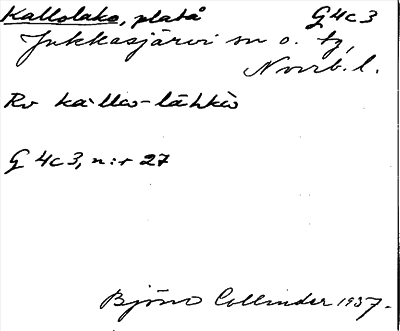 Kallolako, platå G4c3
Jukkasjärvi sn o. tg,
Norrb. l.
Rv kallo-lāhkò
G 4c3, n:r 27
Björn Collinder 1937.